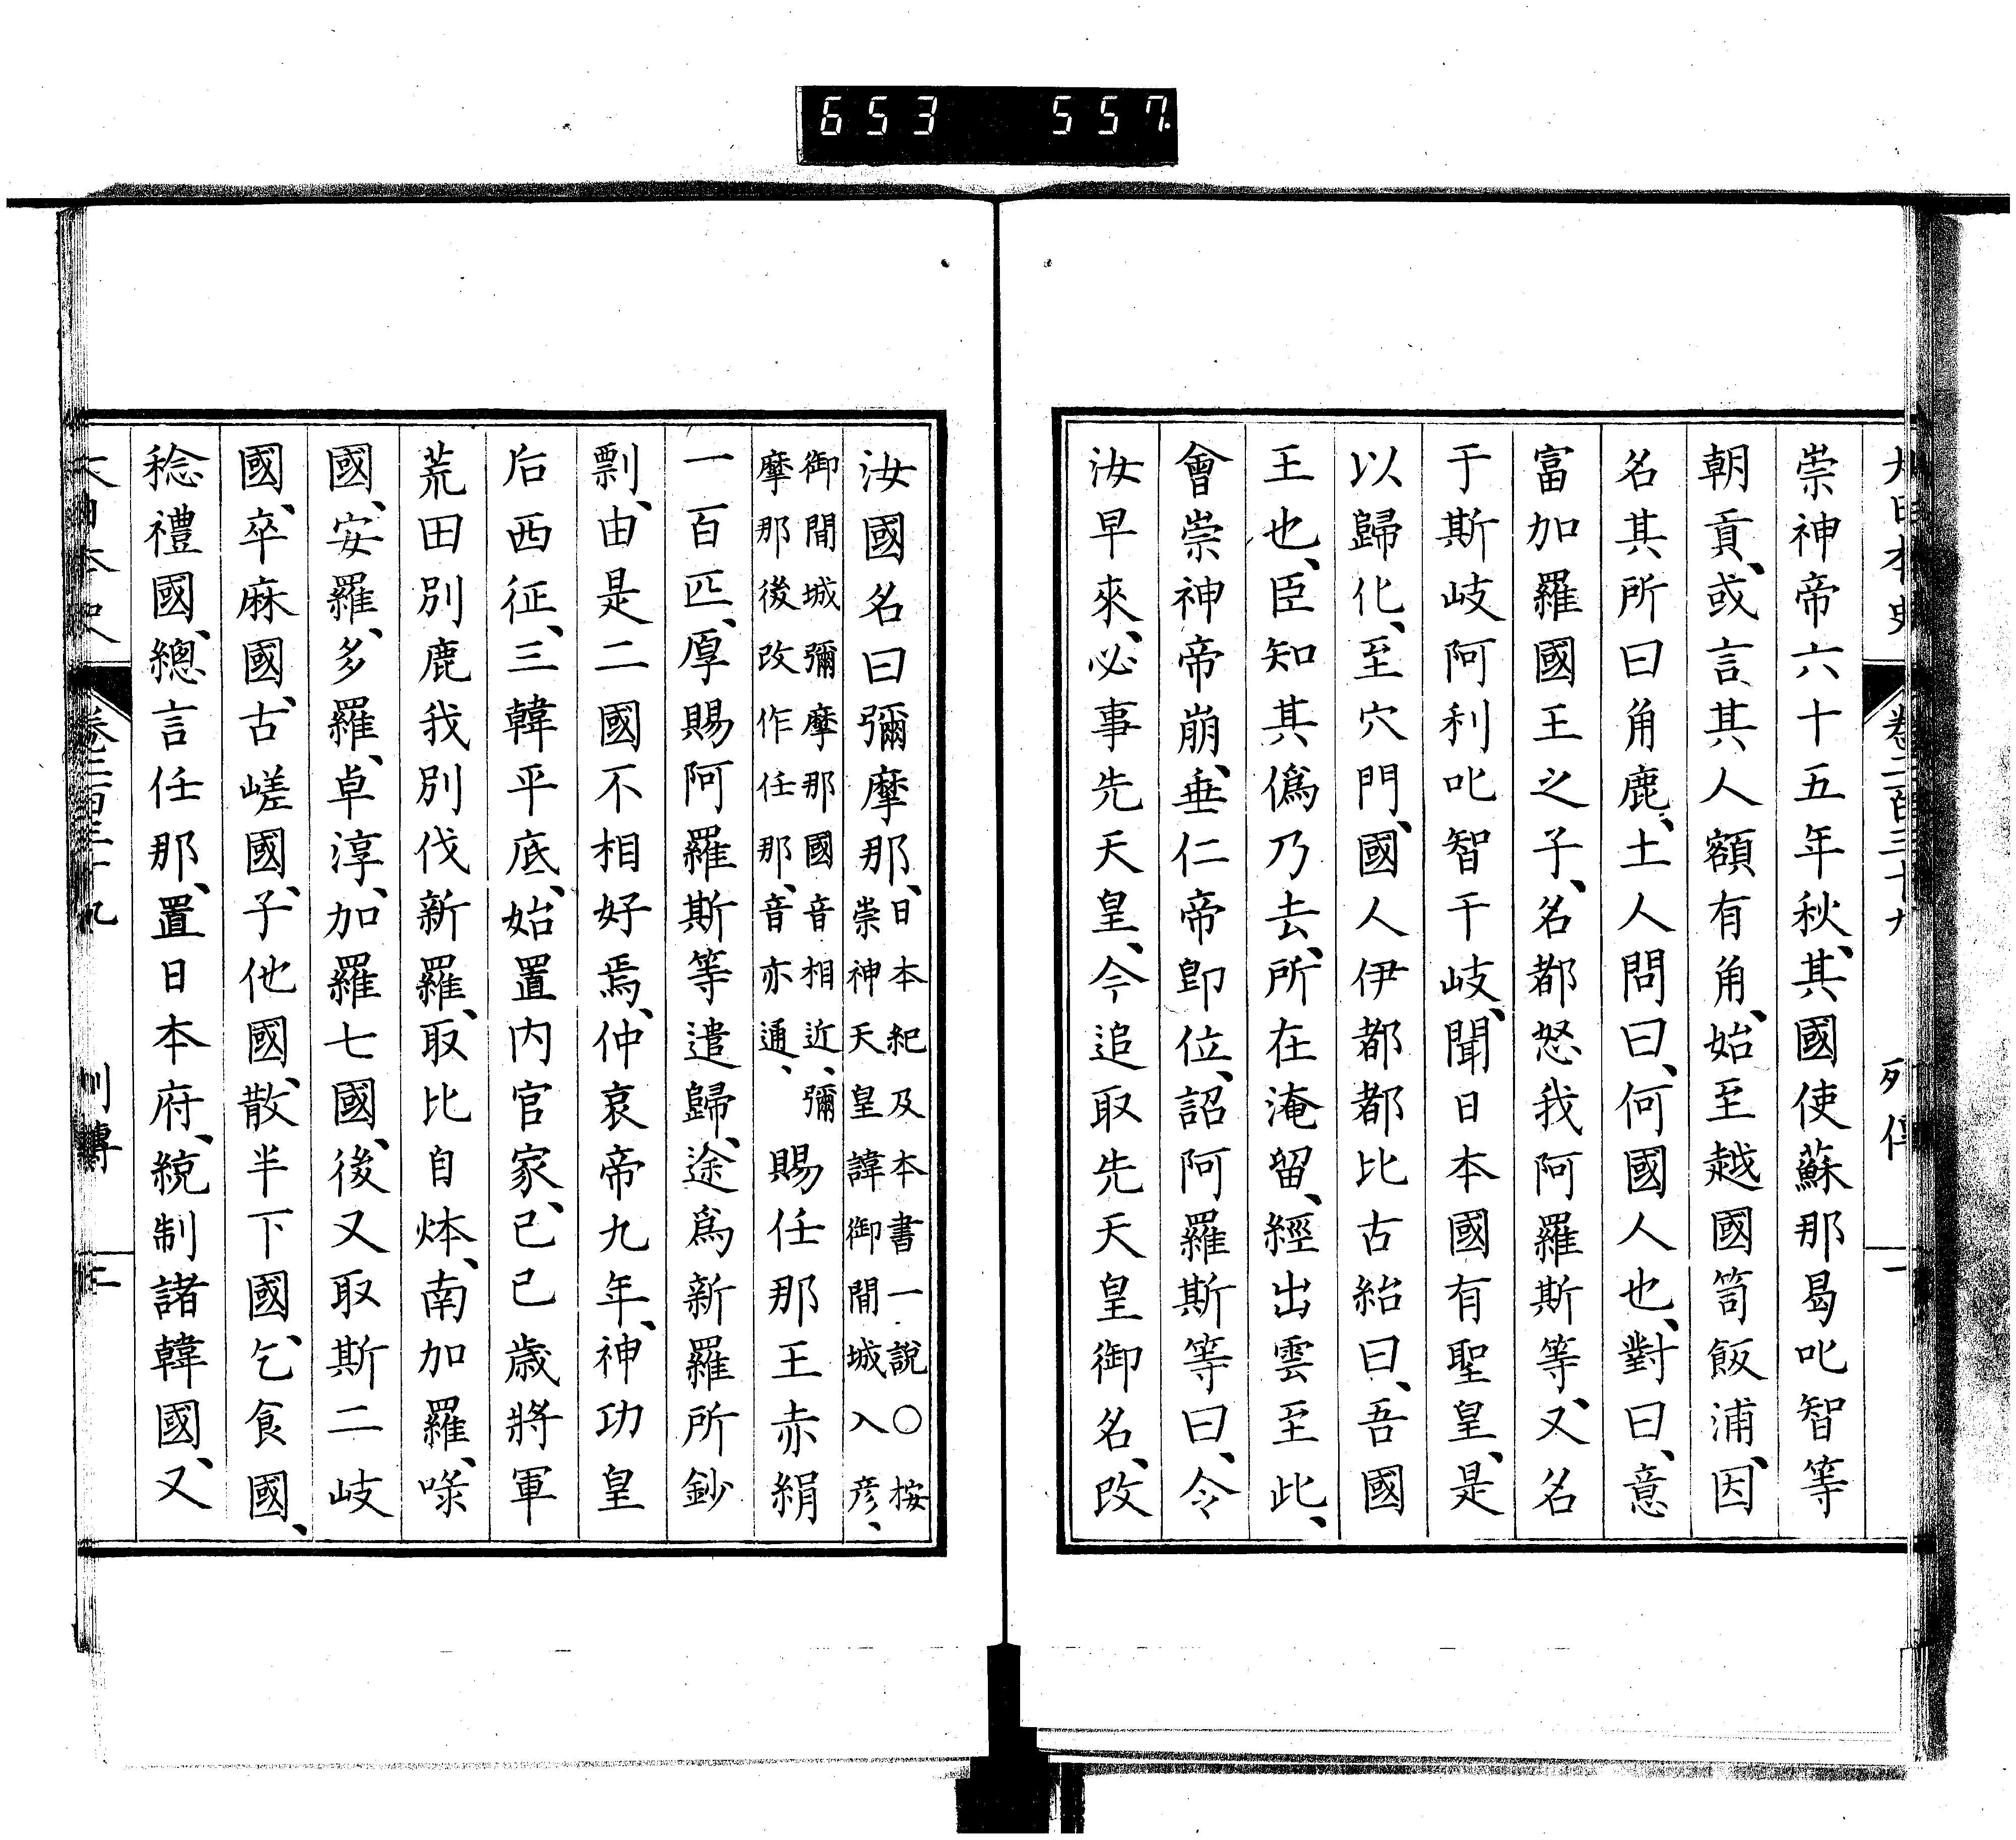 653 557
大日本史 卷二百三十九 列傳 一
崇神帝六十五年秋、其國使蘇那曷叱智等
朝貢、或言、其人額有角、始至越國笥飯浦、因
名其所曰角鹿、土人問曰、何國人也、對曰、意
富加羅國王之子、名都怒我阿羅斯等、又名
于斯岐阿利叱智干岐、聞日本國有聖皇、是
以歸化、至穴門、國人伊都都比古紿曰、吾國
王也、臣知其僞乃去、所在淹留、經出雲至此、
會崇神帝崩、垂仁帝卽位、詔阿羅斯等曰、令
汝早來、必事先天皇、今追取先天皇御名、改
汝國名曰彌摩那、日本紀及本書一說○按
崇神天皇諱御間城入彥、
御間城彌摩那國音相近、彌
摩那後改作任那、音亦通、賜任那王赤絹
一百匹、厚賜阿羅斯等遣歸、途爲新羅所鈔
剽、由是二國不相好焉、仲哀帝九年、神功皇
后西征、三韓平底、始置内官家、己巳歲將軍
荒田別鹿我別伐新羅、取比自㶱、南加羅、㖨
國、安羅、多羅、卓淳、加羅七國、後又取斯二岐
國、卒麻國、古嵯國、子他國、散半下國、乞食國、
稔禮國、總言任那、置日本府、統制諸韓國、又
大日本史 卷二百三十九 列傳 二